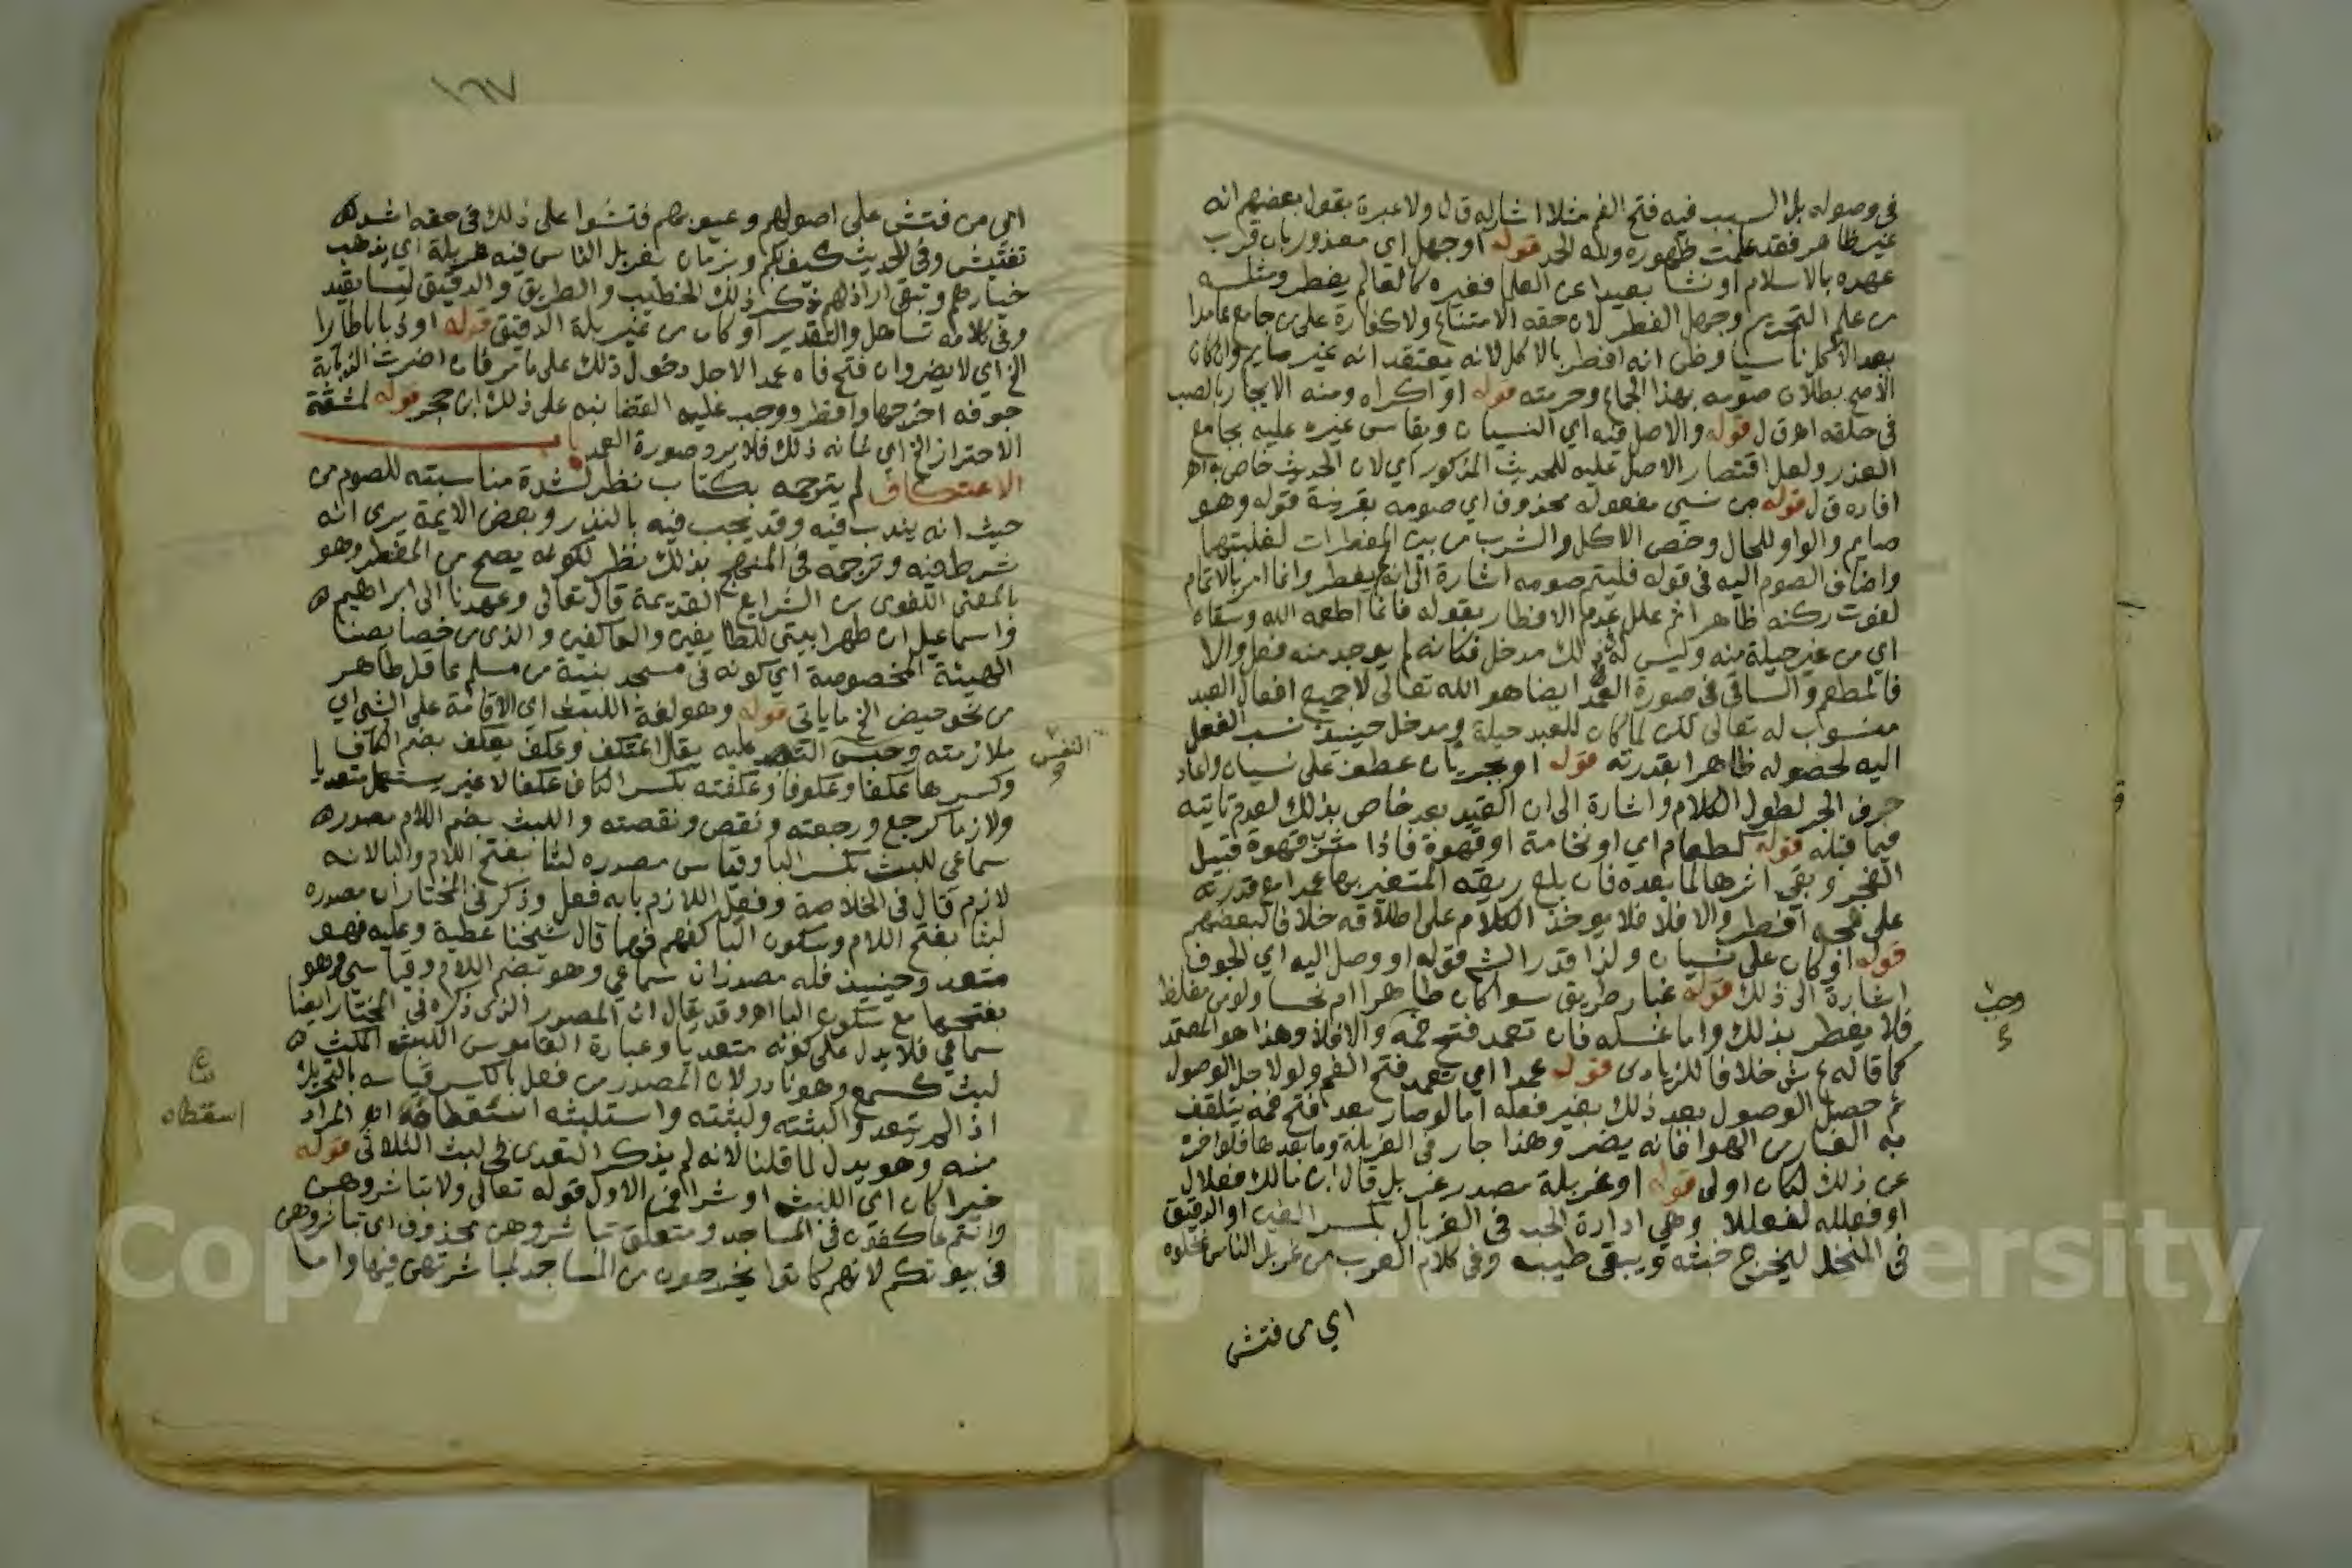 في وصوله بل السبب فيه فتح الفم مثلا اشار له ق ل ولا عبرة بقول بعضهم انه
غير ظاهر فقد علمت ظهوره ولله الحمد قوله او جهل اي معذور بان قرب
عهده بالاسلام او نشا بعيدا عن العلما فغيره كالعالم يفطر ومثله
من علم التحريم وجهل الفطر لان حقه الامتناع ولا كفارة على من جامع عامدا
بعد الاكل ناسيا وظن انه افطر بالاكل لانه يعتقد انه غير صايم وان كان
الاصح بطلان صومه بهذا الجماع وحرمته قوله او اكراه ومنه الايجار بالصب
في حلقه اهـ ق ل قوله والاصل فيه اي النسيان ويقاس غيره عليه بجامع
العذر ولعل اقتصار الاصل عليه للحديث المذكور اي لان الحديث خاص به اهـ
افاده ق ل قوله من نسي مفعوله محذوف اي صومه بقرينة قوله وهو
صايم والواو للحال وخص الاكل والشرب من بين المفطرات لغلبتهما
واضاف الصوم اليه في قوله فليتم صومه اشارة الى انه لم يفطر وانما امر بالاتمام
لفوت ركنه ظاهرا ثم علل عدم الافطار بقوله فانما اطعمه الله وسقاه
اي من غير حيلة منه وليس له في ذلك مدخل فكانه لم يوجد منه فعل والا
فالمطعم والساقي في صورة العمد ايضا هو الله تعالى لا جميع افعال العبد
منسوب له تعالى لكن لما كان للعبد حيلة ومدخل حينيذ نسب الفعل
اليه لحصوله ظاهرا بقدرته قوله او بجريان عطف على نسيان واعاد
حرف الجر لطول الكلام واشارة الى ان القيد بعد خاص بذلك لعدم تاتيه
فيما قبله قوله كطعام اي او نخامة او قهوة فاذا شرب قهوة قبيل
الفجر وبقي اثرها لما بعده فان بلع ريقه المتغير بها عمدا مع قدرته
على مجه افطر والا فلا فلا يوخذ الكلام على اطلاقه خلافا لبعضهم
قوله او كان على نسيان ولذا قدر الش قوله او وصل اليه اي الجوف
اشارة الى ذلك قوله غبار طريق سوا كان طاهرا ام نجسا ولو من مغلظ
فلا يفطر بذلك واما غسله فان تعمد فتح فمه والا فلا وهذا هو المعتمد
كما قاله ع ش خلافا للزيادي قوله عمدا اي تعمد فتح الفم ولو لاجل الوصول
ثم حصل الوصول بعد ذلك بغير فعله اما لو صار بعد فتح فمه يتلقف
به الغبار من الهوا فانه يضر وهذا جار في الغربلة وما بعدها فلو اخره
عن ذلك لكان اولى قوله او غربلة مصدر غربل قال ابن مالك فعلال
او فعلله لفعللا وهي ادارة الحب في الغربال بكسر الغين او الدقيق
في المنخل ليخرج خبثه ويبقى طيبه وفي كلام العرب من غربل الناس نخلوه
اي من فتش
وجب
١٦٧
اي من فتش على اصولهم وعيوبهم فتشوا على ذلك في حقه اشد
تفتيش وفي الحديث كيف بكم وبزمان يغربل الناس فيه غربلة اي يذهب
خيارهم وتبقى اراذلهم ذكر ذلك الخطيب والطريق والدقيق ليسا بقيد
وفي كلامه تساهل والتقدير او كان من غربلة الدقيق قوله او ذبابا طارا
الخ اي لا يضر وان فتح فاه عمدا لاجل دخول ذلك على ما مر فان اضرت الذبابة
جوفه اخرجها وافطر ووجب عليه القضا نبه على ذلك ابن حجر قوله لمشقة
الاحتراز الخ اي شانه ذلك فلا يرد صورة العمد باب
الاعتكاف لم يترجمه بكتاب نظر لشدة مناسبته للصوم من
حيث انه يندب فيه وقد يجب فيه بالنذر وبعض الايمة يرى انه
شرط فيه وترجمه في المنهج بذلك نظر لكونه يصح من المفطر وهو
بالمعنى اللغوي من الشرايع القديمة قال تعالى وعهدنا الى ابراهيم
واسماعيل ان طهرا بيتي للطايفين والعاكفين والذي من خصايصنا
الهيئة المخصوصة اي كونه في مسجد بنية من مسلم عاقل طاهر
من نحو حيض الخ ما ياتي قوله وهو لغة اللبث اي الاقامة على الشي اي
ملازمته وحبس النفس عليه يقال اعتكف وعكف يعكف بضم الكاف
وكسرها عكفا وعكوفا وعكفته بكسر الكاف عكفا لا غير يستعمل متعديا
ولازما كرجع ورجعته ونقص ونقصته واللبث بضم اللام مصدر
سماعي للبث بكسر البا وقياس مصدره لبثا بفتح اللام والبا لانه
لازم قال في الخلاصة وفعل اللازم بابه فعل وذكر في المختار ان مصدره
لبثا بفتح اللام وسكون البا كفهم فهما قال شيخنا عطية وعليه فهو
متعد وحينيذ فله مصدران سماعي وهو بضم اللام وقياسي وهو
بفتحها مع سكون البا اهـ وقد يقال ان المصدر الذي ذكره في المختار ايضا
سماعي فلا يدل على كونه متعديا وعبارة القاموس اللبث المكث
لبث كسمع وهو نادر لان المصدر من فعل بالكسر قياسه بالتحريك
اذا لم يتعد والبثته ولبثته واستلبثه استبطاه اهـ المراد
منه وهو يدل لما قلنا لانه لم يذكر التعدي في لبث الثلاثي قوله
خيرا كان اي اللبث او شرا فمن الاول قوله تعالى ولا تباشروهن
وانتم عاكفون في المساجد ومتعلق تباشروهن محذوف اي تباشروهن
في بيوتكم لانهم كانوا يخرجون من المساجد لمباشرتهن فيها واما
النفس
اسقطاه